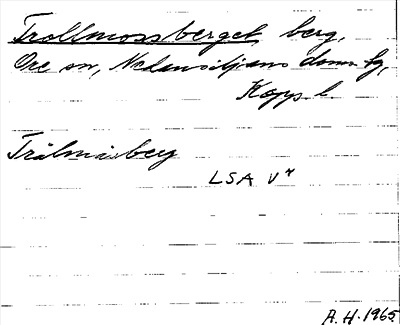 Trollmossberget, berg,
Ore sn, Nedansiljans doms. fg,
Kopp. l.
Trälmåsberg
LSA V 4
A.H. 1965